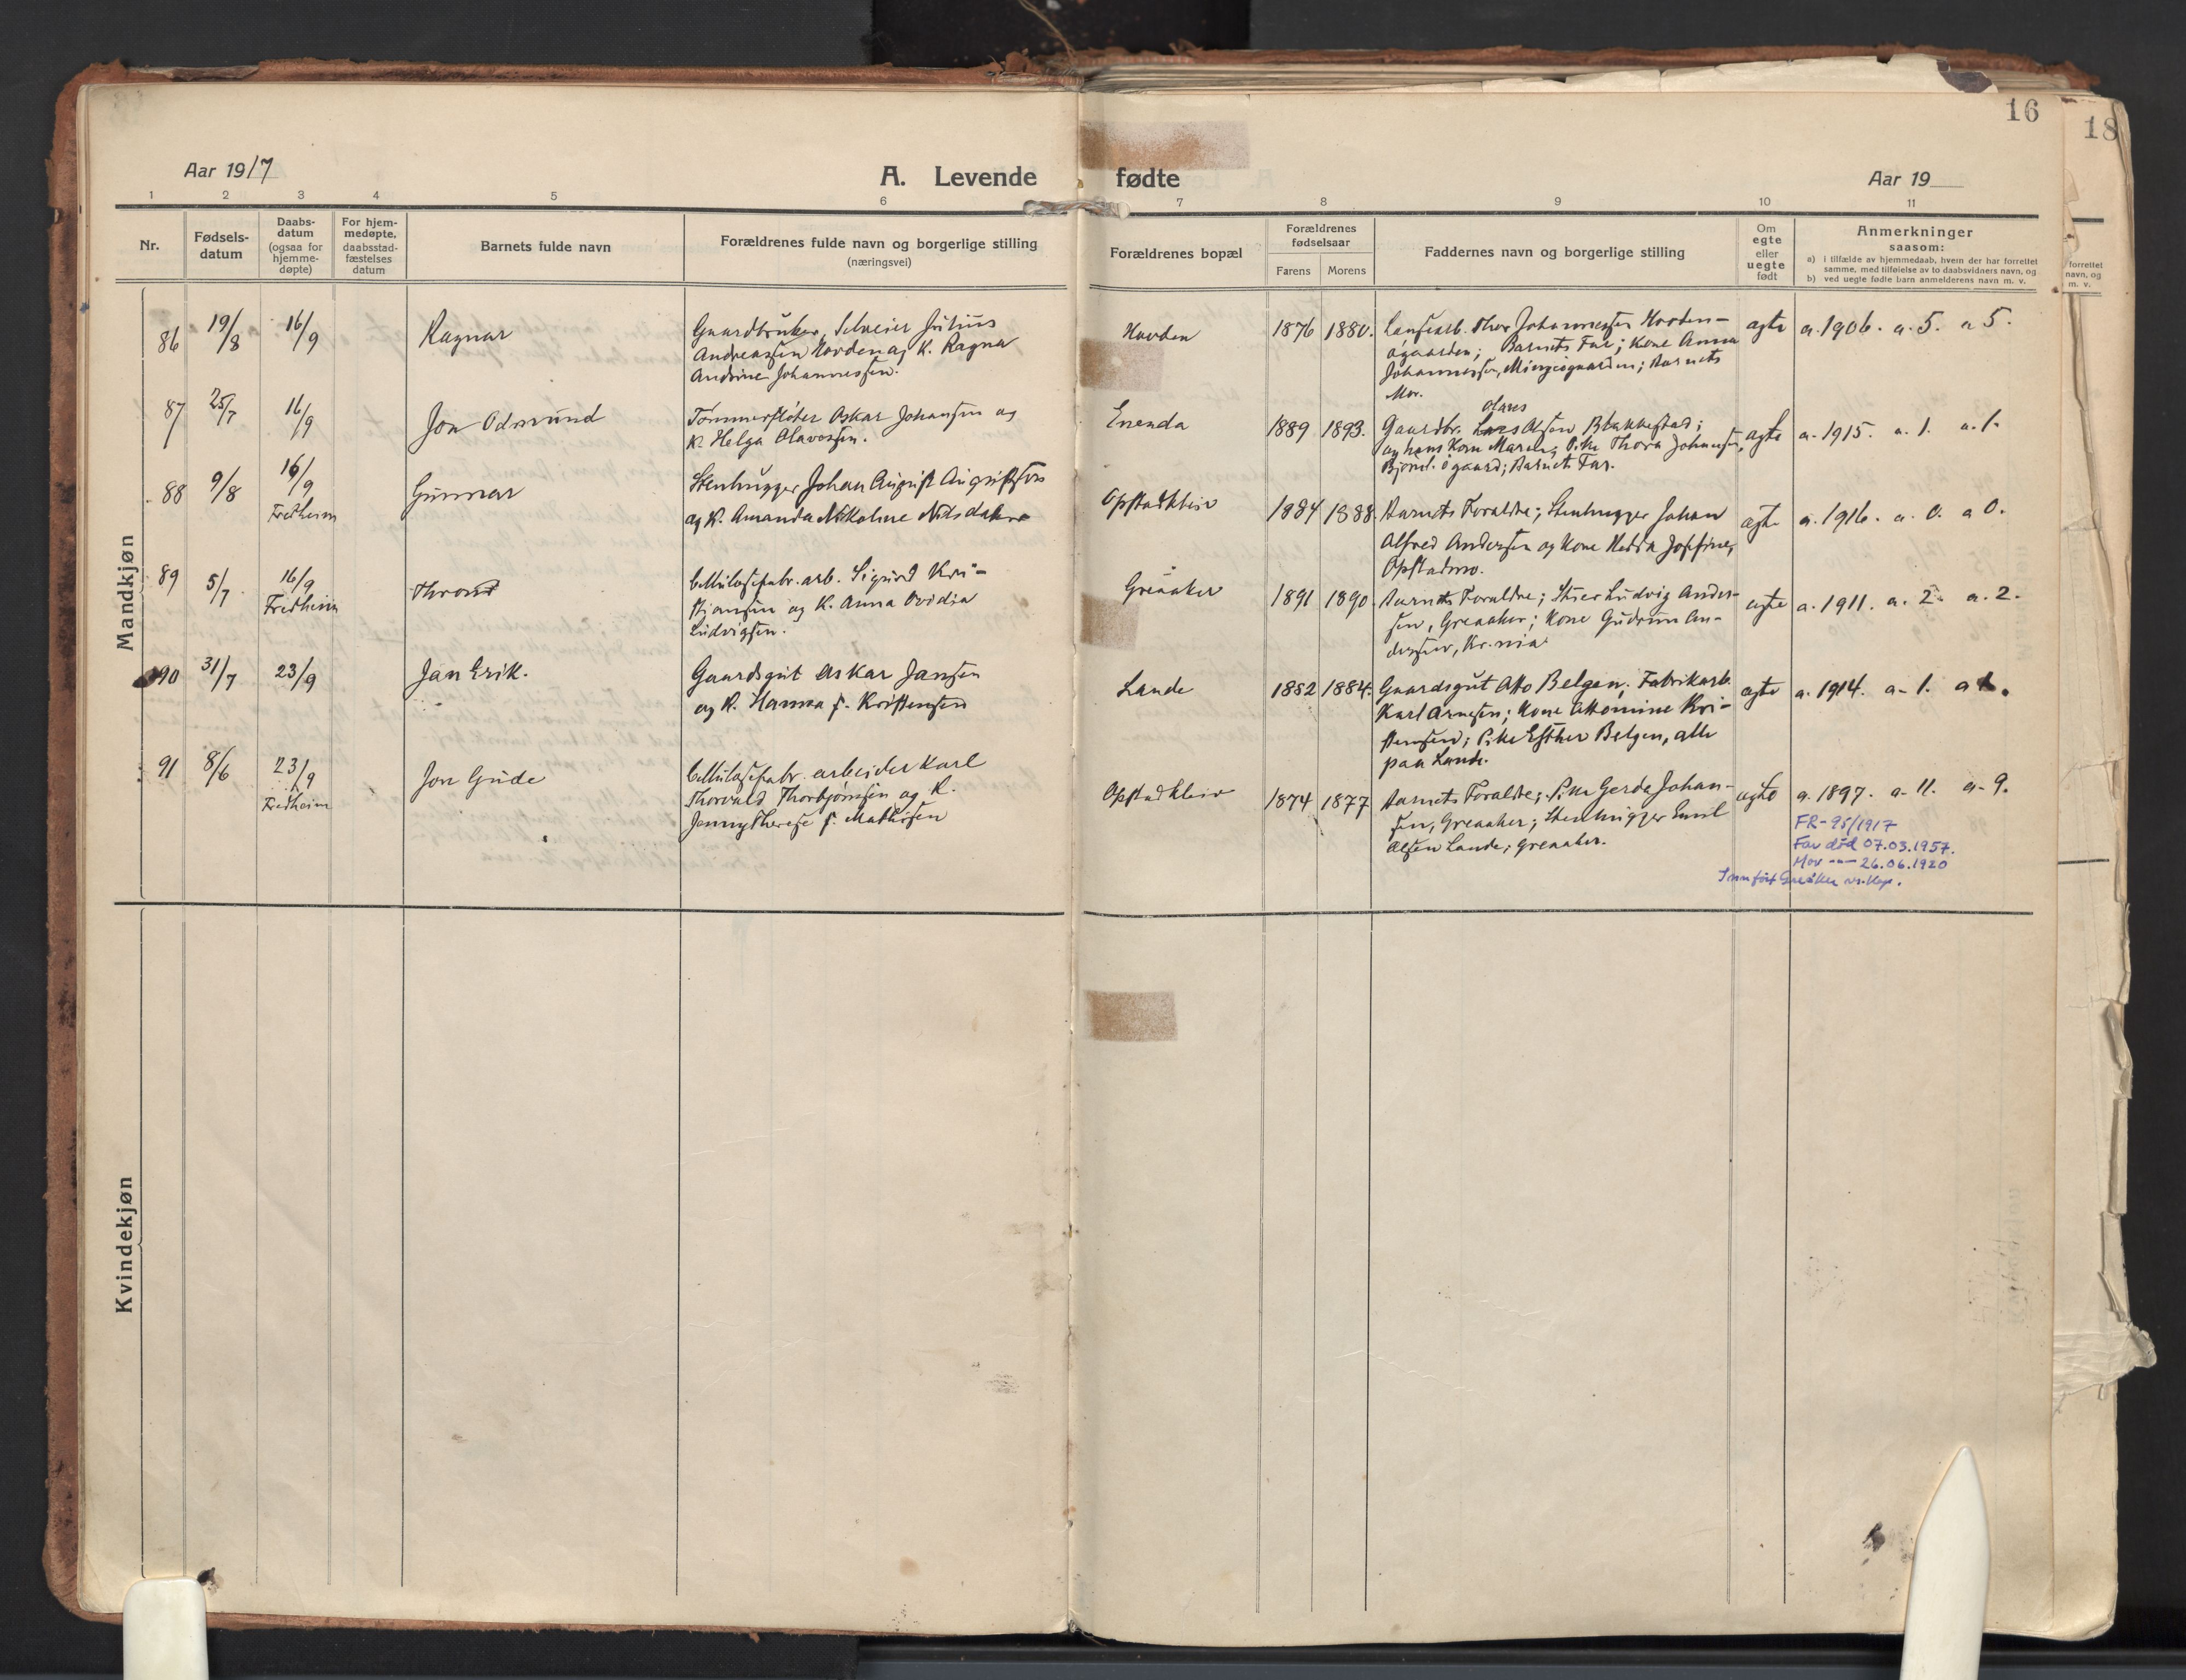 16
18
Aar 1917
A. Levende fødte
Aar 19
1 2 3 4 5 6 7 8 9 10 11
Nr.
Fødsels-
datum
Daabs-
datum
(ogsaa for
hjemme-
døpte)
For hjem-
medøpte,
daabsstad-
fæstelses
datum
Barnets fulde navn
Forældrenes fulde navn og borgerlige stilling
(næringsvei)
Forældrenes bopæl
Forældrenes
fødselsaar
Farens Morens
Faddernes navn og borgerlige stilling
Om
egte
eller
uegte
født
Anmerkninger
saasom:
a) i tilfælde av hjemmedaab, hvem der har forrettet
samme, med tilføielse av to daabsvidners navn, og
b) ved uegte fødte barn anmelderens navn m. v.
forrettet
navn, og
m. v.
Mandkjøn
86 19/8 16/9 Ragnar
Gaardbruker, Julius
Andreassen Hovden og K. Ragna
Andrine Johannessen.
Hovden 1876 1880.
Thor Johannessen Hovden-
øgaarden; Barnets Far; Kone Anna
Johannessen, Mingesgaarden; Barnets
Mor.
egte a. 1906. a. 5. a 5.
87 25/7 16/9 Jon Odmund
Tømmerfløter Oskar Johansen og
K. Helga Olavessen.
Enenda 1889 1893.
Olaves
Gaardbr. Lars Olsen Blakkestad;
og hans Kone Maren; Pike Thora Johansen,
øgaard; Barnets Far.
egte a. 1915. a. 1. a. 1.
88 9/8 16/9 Gunnar
Fredheim
Stenhugger Johan August Augustsson
og K. Amanda Nikoline Nilsdatter
Opstadkleiv 1884 1888.
Barnets Foraldre; Stenhugger Johan
Alfred Andersen og Kone Hedda Josefine,
Opstadmo.
egte a. 1916. a. 0. a 0.
89 5/7 16/9 Thrond
Fredheim
Cellulosefabr. arb. Sigurd Kri-
stiansen og K. Anna Ovidia
Ludvigsen.
Greaaker 1891 1890.
Barnets Foraldre; Ludvig Ander-
sen, Greaaker; Kone Gudrun An-
dersen, Kr.nia
egte a. 1911. a. 2. a. 2.
90 31/7 23/9 Jan Erik.
Gaardsgut Oskar Jansen
og K. Hanna f. Kristensen
Lande 1882 1884.
Gaardsgut Otto Belgen; Fabrikarb.
Karl Arnesen; Kone Ottomine Kri-
stensen; Pike Esther Belgen, alle
paa Lande.
egte a. 1914. a. 1. a 1.
91 8/6 23/9 Jon Gude
Fredheim
Cellulosefabr. arbeider Karl
Thorvald Thorbjørnsen og K.
Jenny Therese f. Mathisen
Opstadkleiv 1874 1877
Barnets Foraldre; Pike Gerda Johan-
sen, Greaaker; Stenhugger Emil
Olsen Lande; Greaaker.
egte a. 1897. a. 11. a. 9.
FR-95/1917
Far død 07.03.1957.
Mor -"- 26.06.1920
Innført Greåker
Kvindekjøn